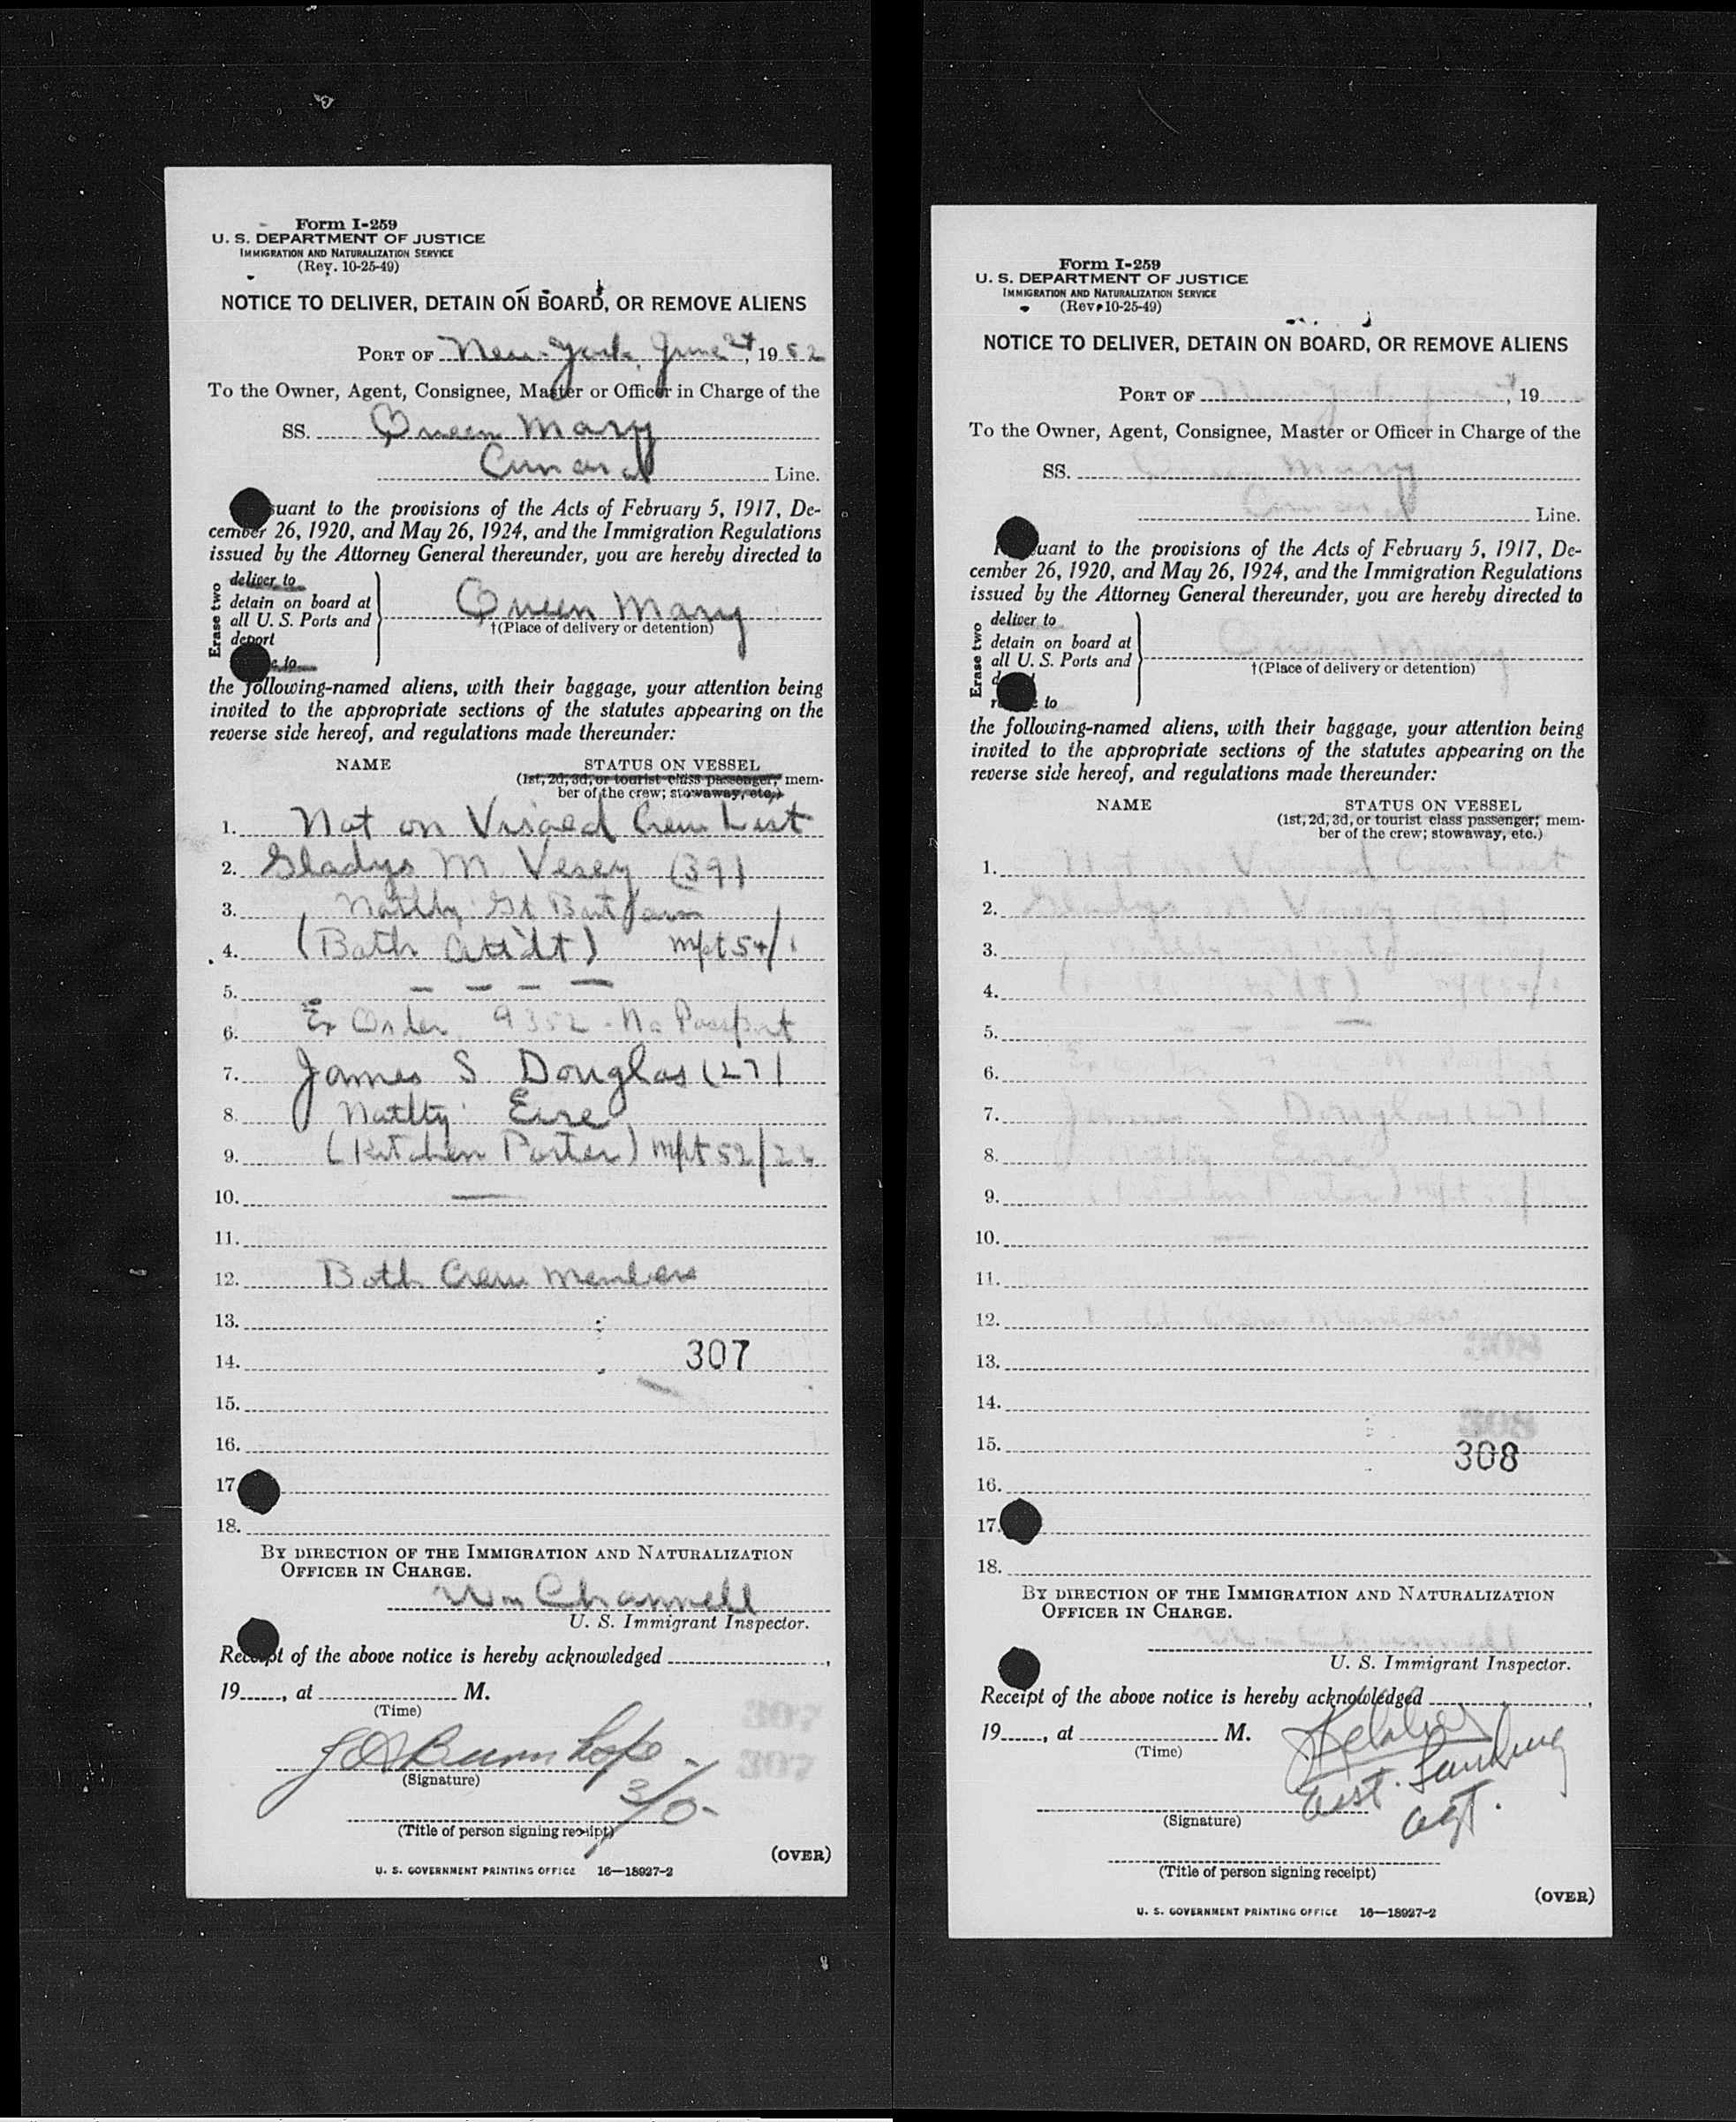 Form I-259
U. S. DEPARTMENT OF JUSTICE
IMMIGRATION AND NATURALIZATION SERVICE
(Rev. 10-25-49)
NOTICE TO DELIVER, DETAIN ON BOARD, OR REMOVE ALIENS
PORT OF New York, June 24, 1952
To the Owner, Agent, Consignee, Master or Officer in Charge of the
SS. Queen Mary
Cunard Line.
suant to the provisions of the Acts of February 5, 1917, De-
cember 26, 1920, and May 26, 1924, and the Immigration Regulations
issued by the Attorney General thereunder, you are hereby directed to
Erase two
deliver to
detain on board at
all U. S. Ports and
deport
e to
Queen Mary
†(Place of delivery or detention)
the following-named aliens, with their baggage, your attention being
invited to the appropriate sections of the statutes appearing on the
reverse side hereof, and regulations made thereunder:
NAME STATUS ON VESSEL
(1st, 2d, 3d, or tourist class passenger; mem-
ber of the crew; stowaway, etc.)
1. Not on Visaed Crew List
2. Gladys M. Vesey (39)
3. Natlty: Gt Britain
4. (Bath Att'dt) Mpt 54/1
5. — — — —
6. Ex Order 9352 - No Passport
7. James S Douglas (27)
8. Natlty: Eire
9. (Kitchen Porter) Mpt 52/22
10.
11.
12. Both Crew Members
13.
14. 307
15.
16.
17
18.
BY DIRECTION OF THE IMMIGRATION AND NATURALIZATION
OFFICER IN CHARGE.
Wm Channell
U. S. Immigrant Inspector.
Receipt of the above notice is hereby acknowledged
19, at M.
(Time)
307
307
J A Burnhope -
(Signature)
3/O-
(Title of person signing receipt)
(OVER)
U. S. GOVERNMENT PRINTING OFFICE 16—18927-2
Form I-259
U. S. DEPARTMENT OF JUSTICE
IMMIGRATION AND NATURALIZATION SERVICE
(Rev. 10-25-49)
NOTICE TO DELIVER, DETAIN ON BOARD, OR REMOVE ALIENS
PORT OF , 19
To the Owner, Agent, Consignee, Master or Officer in Charge of the
SS. Queen Mary
Cunard Line.
uant to the provisions of the Acts of February 5, 1917, De-
cember 26, 1920, and May 26, 1924, and the Immigration Regulations
issued by the Attorney General thereunder, you are hereby directed to
Erase two
deliver to
detain on board at
all U. S. Ports and
d
r e to
Queen Mary
†(Place of delivery or detention)
the following-named aliens, with their baggage, your attention being
invited to the appropriate sections of the statutes appearing on the
reverse side hereof, and regulations made thereunder:
NAME STATUS ON VESSEL
(1st, 2d, 3d, or tourist class passenger; mem-
ber of the crew; stowaway, etc.)
1.
2.
3.
4.
5.
6.
7.
8.
9.
10.
11.
12.
308
13.
14.
308
15. 308
16.
17.
18.
BY DIRECTION OF THE IMMIGRATION AND NATURALIZATION
OFFICER IN CHARGE.
U. S. Immigrant Inspector.
Receipt of the above notice is hereby acknowledged
19, at M.
(Time)
Asst. Landing
Agt.
(Signature)
(Title of person signing receipt)
(OVER)
U. S. GOVERNMENT PRINTING OFFICE 16—18927-2